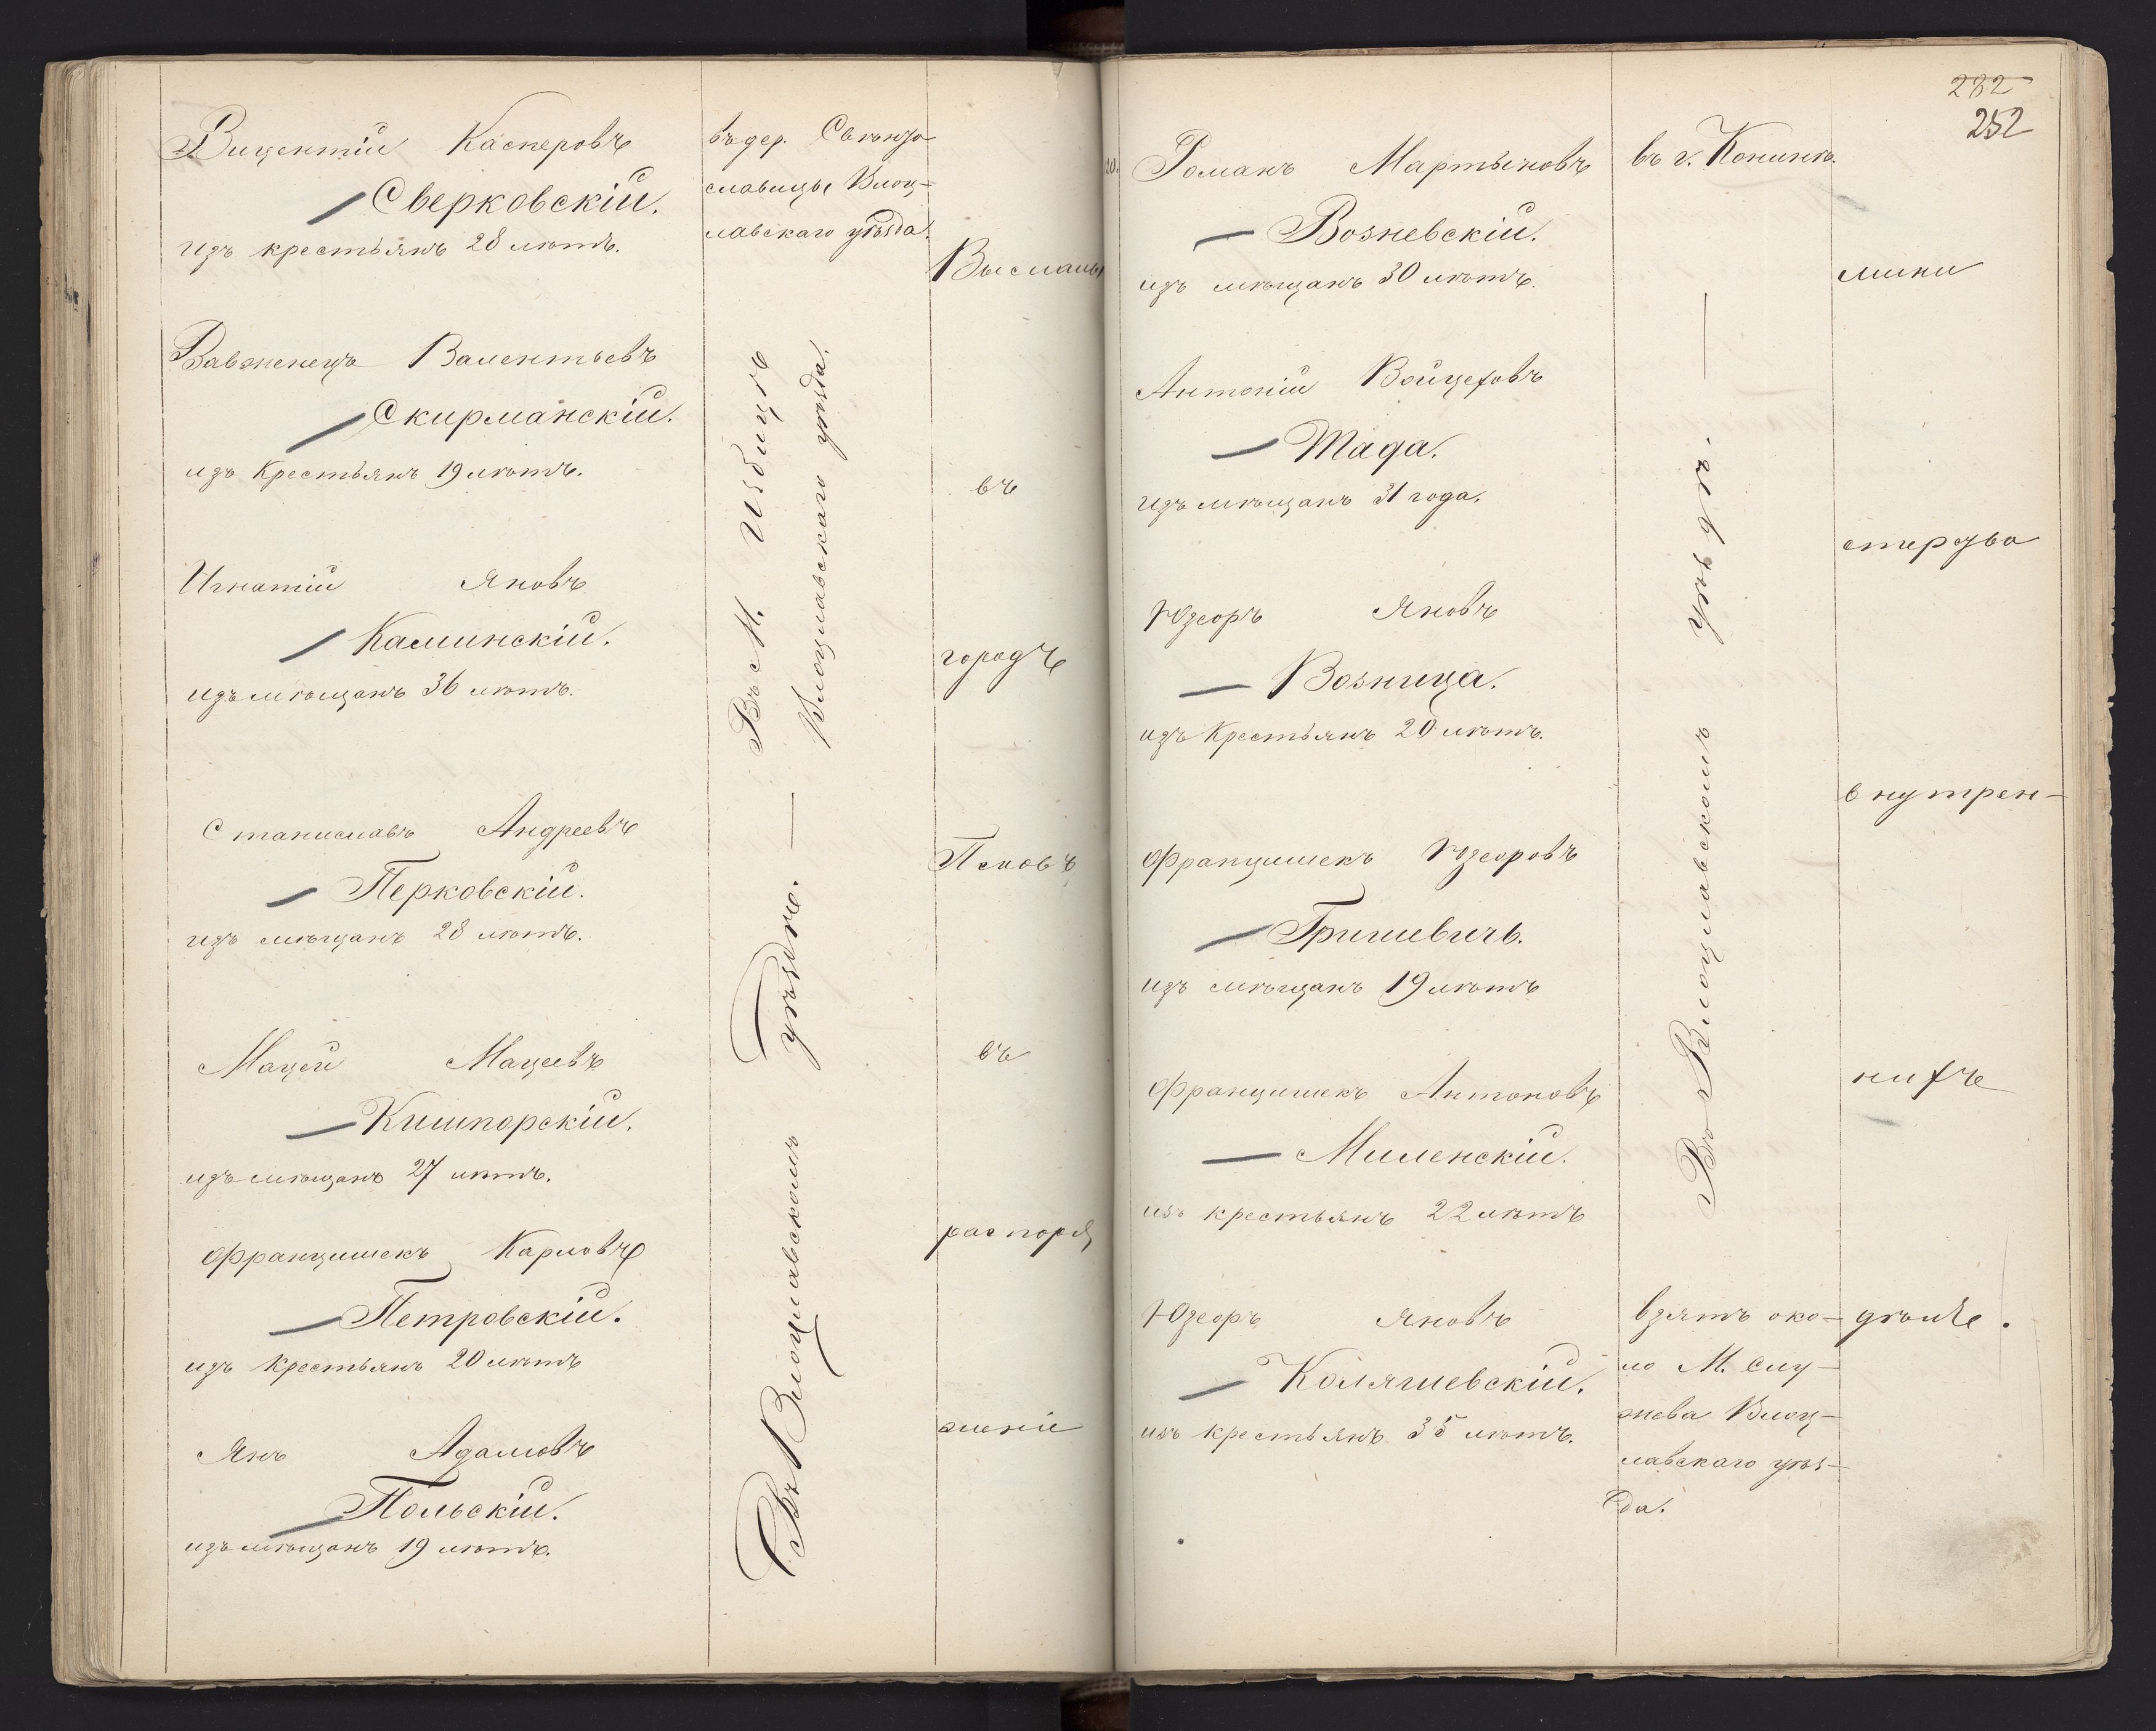 Вицентій Касперовъ
Сверковскій.
изъ крестьянъ 28 лѣтъ.
въ дер. Свѣнто
славицы Влоц-
лавскаго уѣзда.
Высланы
Вавженецъ Валентьевъ
Скирманскій.
изъ Крестьянъ 19 лѣтъ.
Въ М. Избицѣ
Влоцлавскаго уѣзда.
въ
Игнатій Яновъ
Каминскій.
изъ мѣщанъ 36 лѣтъ.
городъ
Станиславъ Андреевъ
Перковскій.
изъ мѣщанъ 28 лѣтъ.
Псковъ
Мацей Мацеевъ
Кишпорскій.
изъ мѣщанъ 27 лѣтъ.
Въ Влоцлавскомъ уѣздѣ. —
въ
Францишекъ Карловъ
Петровскій.
изъ крестьянъ 20 лѣтъ
распоря
Янъ Адамовъ
Польскій.
изъ мѣщанъ 19 лѣтъ.
женіе
282
252
Романъ Мартыновъ
Возневскій.
изъ мѣщанъ 30 лѣтъ.
въ г. Конинѣ.
мини
Антоній Войцеховъ
Мада.
изъ мѣщанъ 31 года.
стерства
Юзефъ Яновъ
Возница.
изъ Крестьянъ 20 лѣтъ.
Въ Влоцлавскомъ уѣздѣ. —
внутрен-
Францишекъ Юзефовъ
Гришевичъ.
изъ мѣщанъ 19 лѣтъ
Францишекъ Антоновъ
Миленскій.
изъ крестьянъ 22 лѣтъ
нихъ
Юзефъ Яновъ
Колягиевскій.
изъ крестьянъ 35 лѣтъ.
взятъ око-
ло М. Слу-
жева Влоц-
лавскаго уѣз-
да.
дѣлъ.